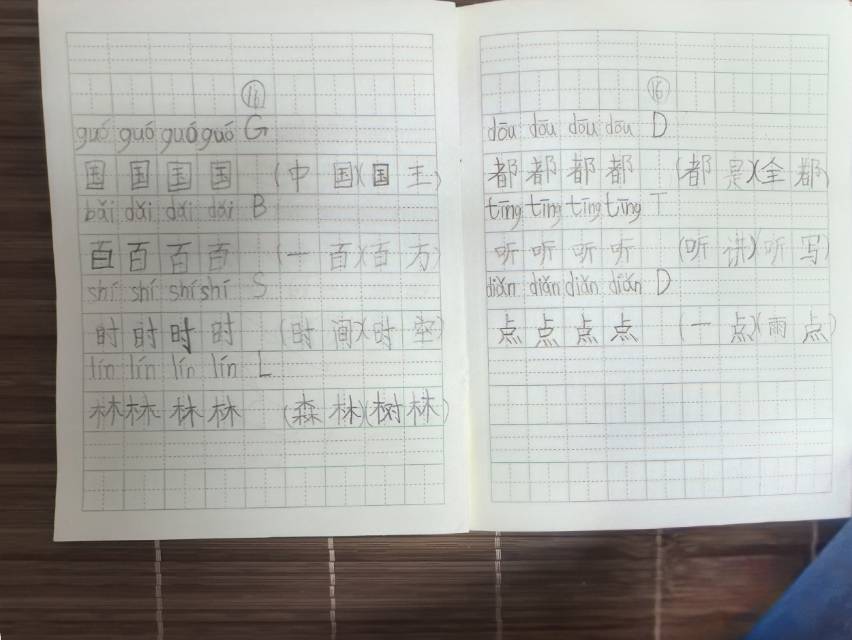 16
guó guó guó guó G
国 国 国 国 (中 国)(国 王)
bǎi dǎi dǎi dǎi B
百 百 百 百 (一 百)(百 万)
shí shí shí shí S
时 时 时 时 (时 间)(时 空)
lín lín lín lín L
林 林 林 林 (森 林)(树 林)
16
dōu dōu dōu dōu D
都 都 都 都 (都 是)(全 都)
tīng tīng tīng tīng T
听 听 听 听 (听 讲)(听 写)
diǎn diǎn diǎn diǎn D
点 点 点 点 (一 点)(雨 点)